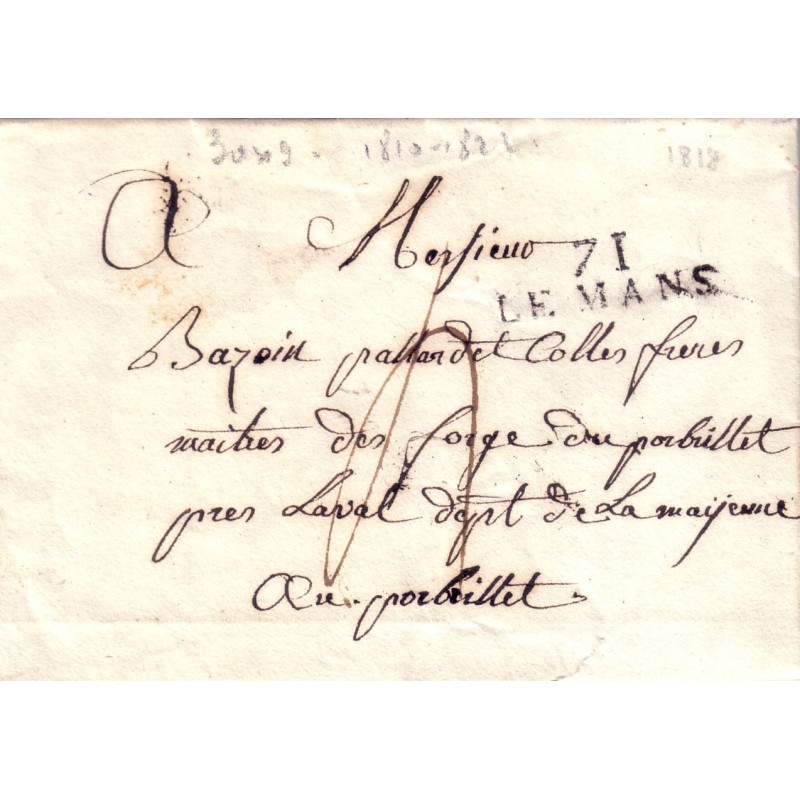 1810-182
1818
A Monsieur
71
LE MANS
Bazoin pallard et Colles freres
maitres des forge du porbrillet
pres Laval dept de La maijenne
Au porbrillet